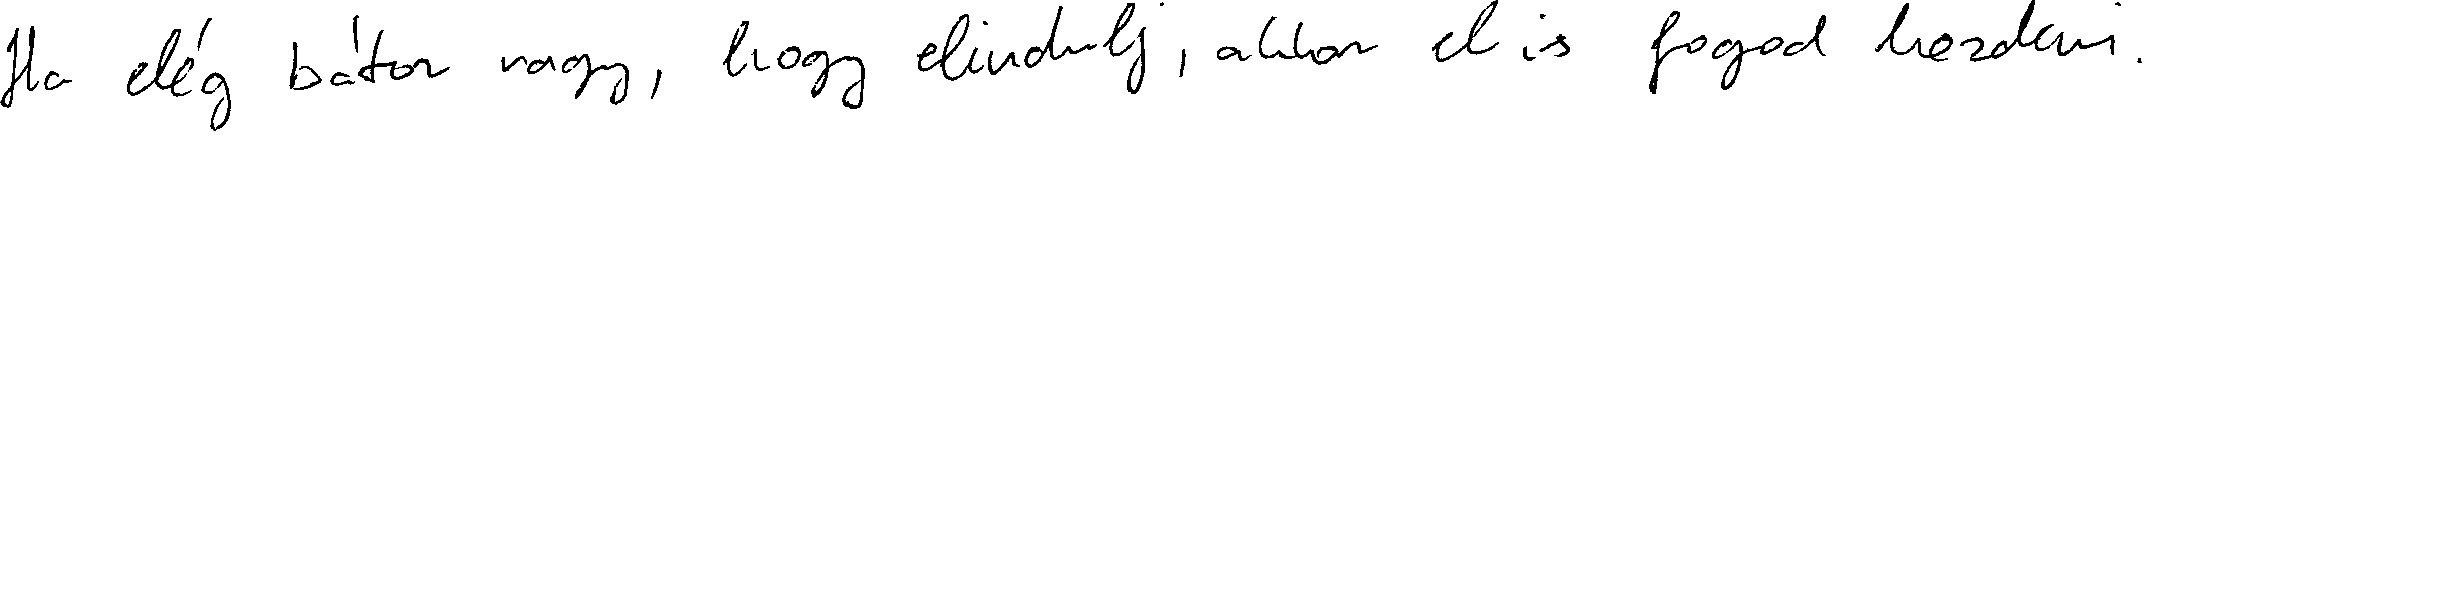 Ha elég bátor vagy, hogy elindulj, akkor el is fogod kezdeni.